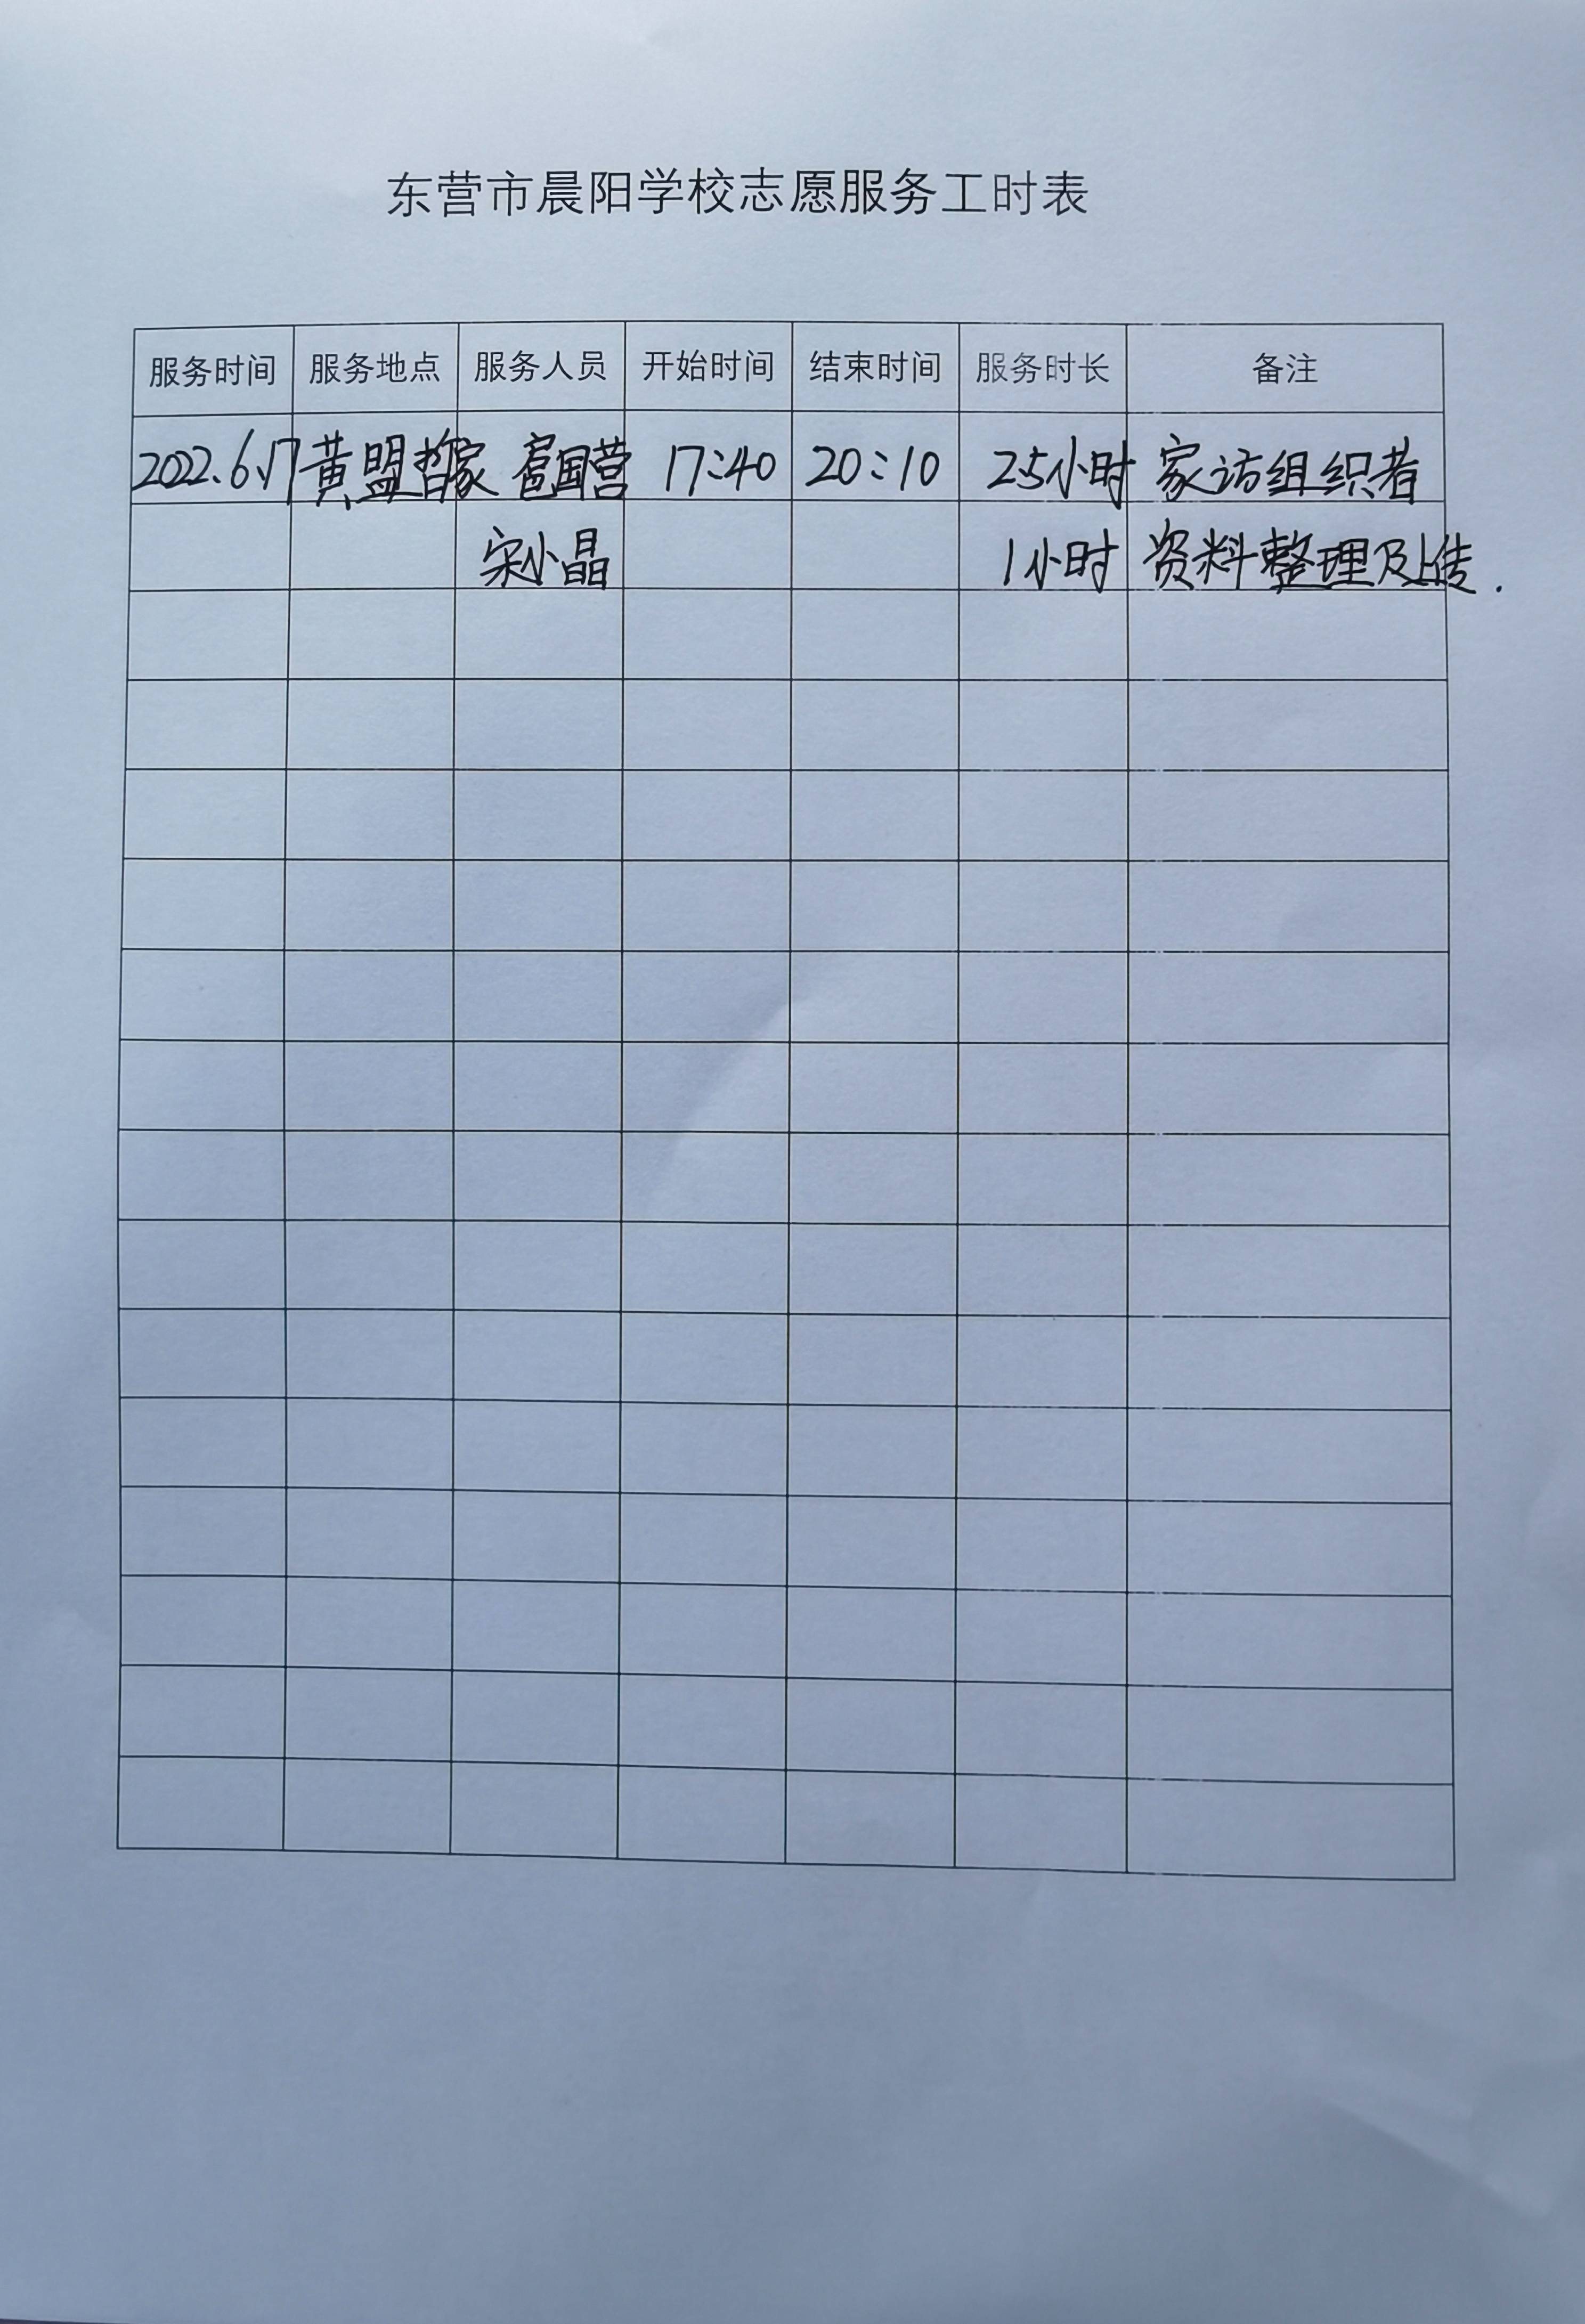 东营市晨阳学校志愿服务工时表
服务时间 服务地点 服务人员 开始时间 结束时间 服务时长 备注
2022.6.17 黄盟哲家 扈国营 17:40 20:10 2.5小时 家访组织者
宋小晶 1小时 资料整理及上传.